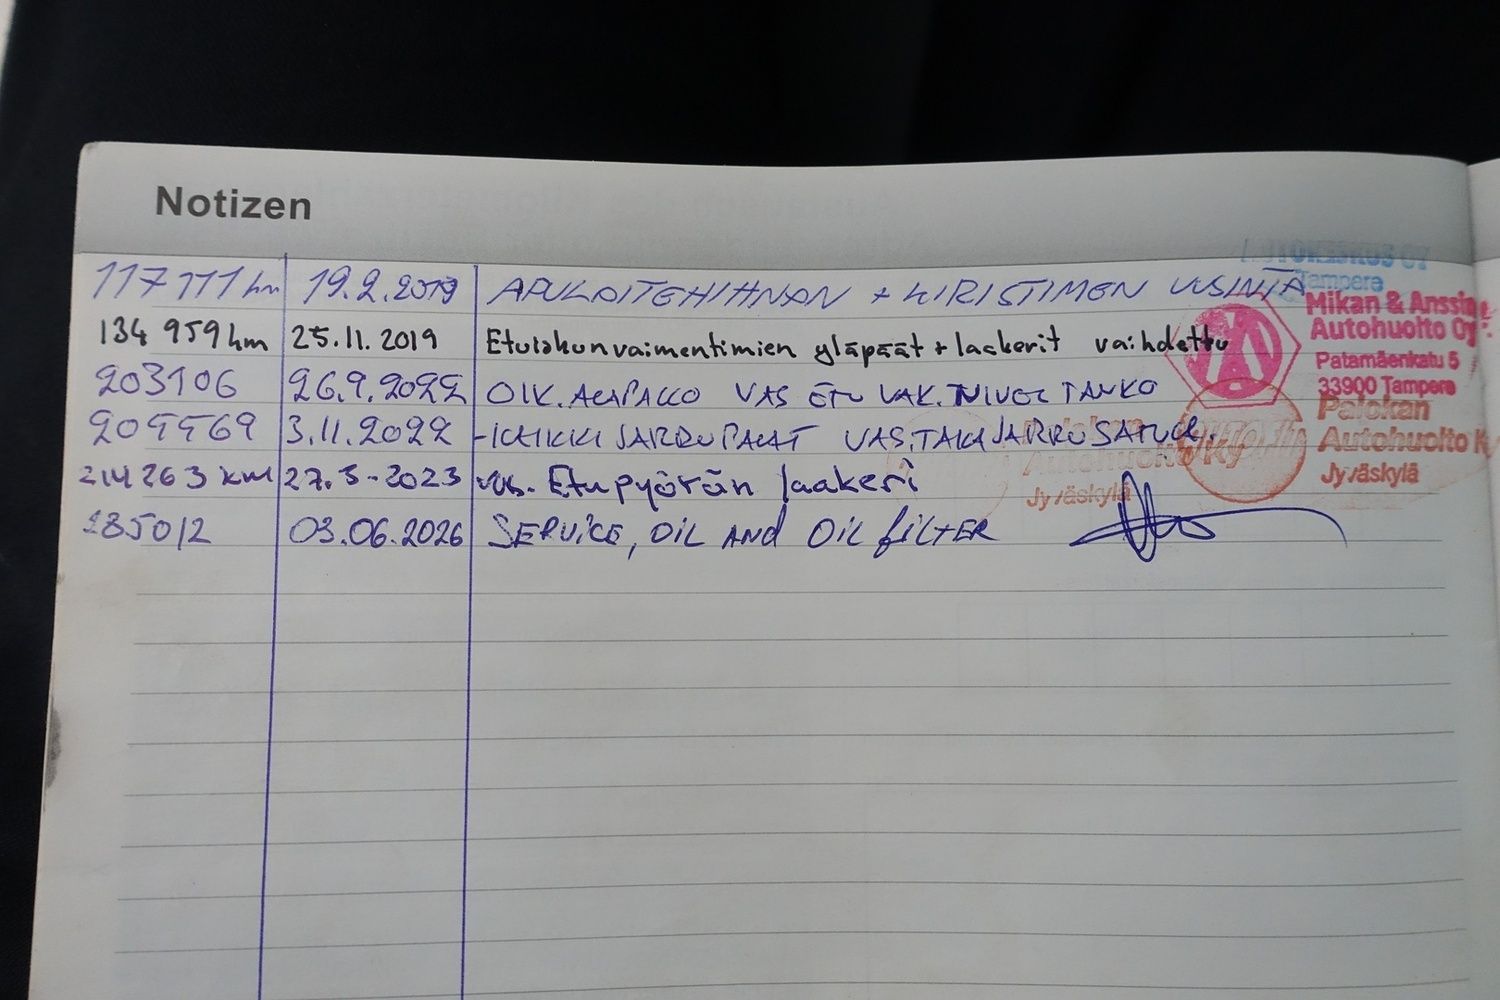 Notizen
117 111 km 19.2.2019 APULAITEHIHNAN + KIRISTIMEN UUSINTA
AUTOKESKUS OY
Tampere
134 959 km 25.11.2019 Etuiskunvaimentimien yläpäät + laakerit vaihdettu
Mikan & Anssin
Autohuolto Oy
Patamäenkatu 5
33900 Tampere
203106 26.9.2022 OIK. ALAPALLO VAS ETU VAK. NIVEL TANKO
Palokan
Autohuolto Ky
Jyväskylä
3.11.2022 - KAIKKI JARRUPALAT VAS. TAKAJARRUSATULA.
Autohuolto Ky
Jyväskylä
214 263 km 27.3-2023 vas. Etupyörän laakeri
285012 03.06.2026 SERVICE, OIL AND OIL FILTER